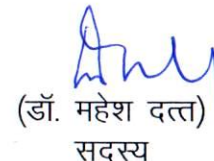 (डॉ. महेश दत्त)
सदस्य